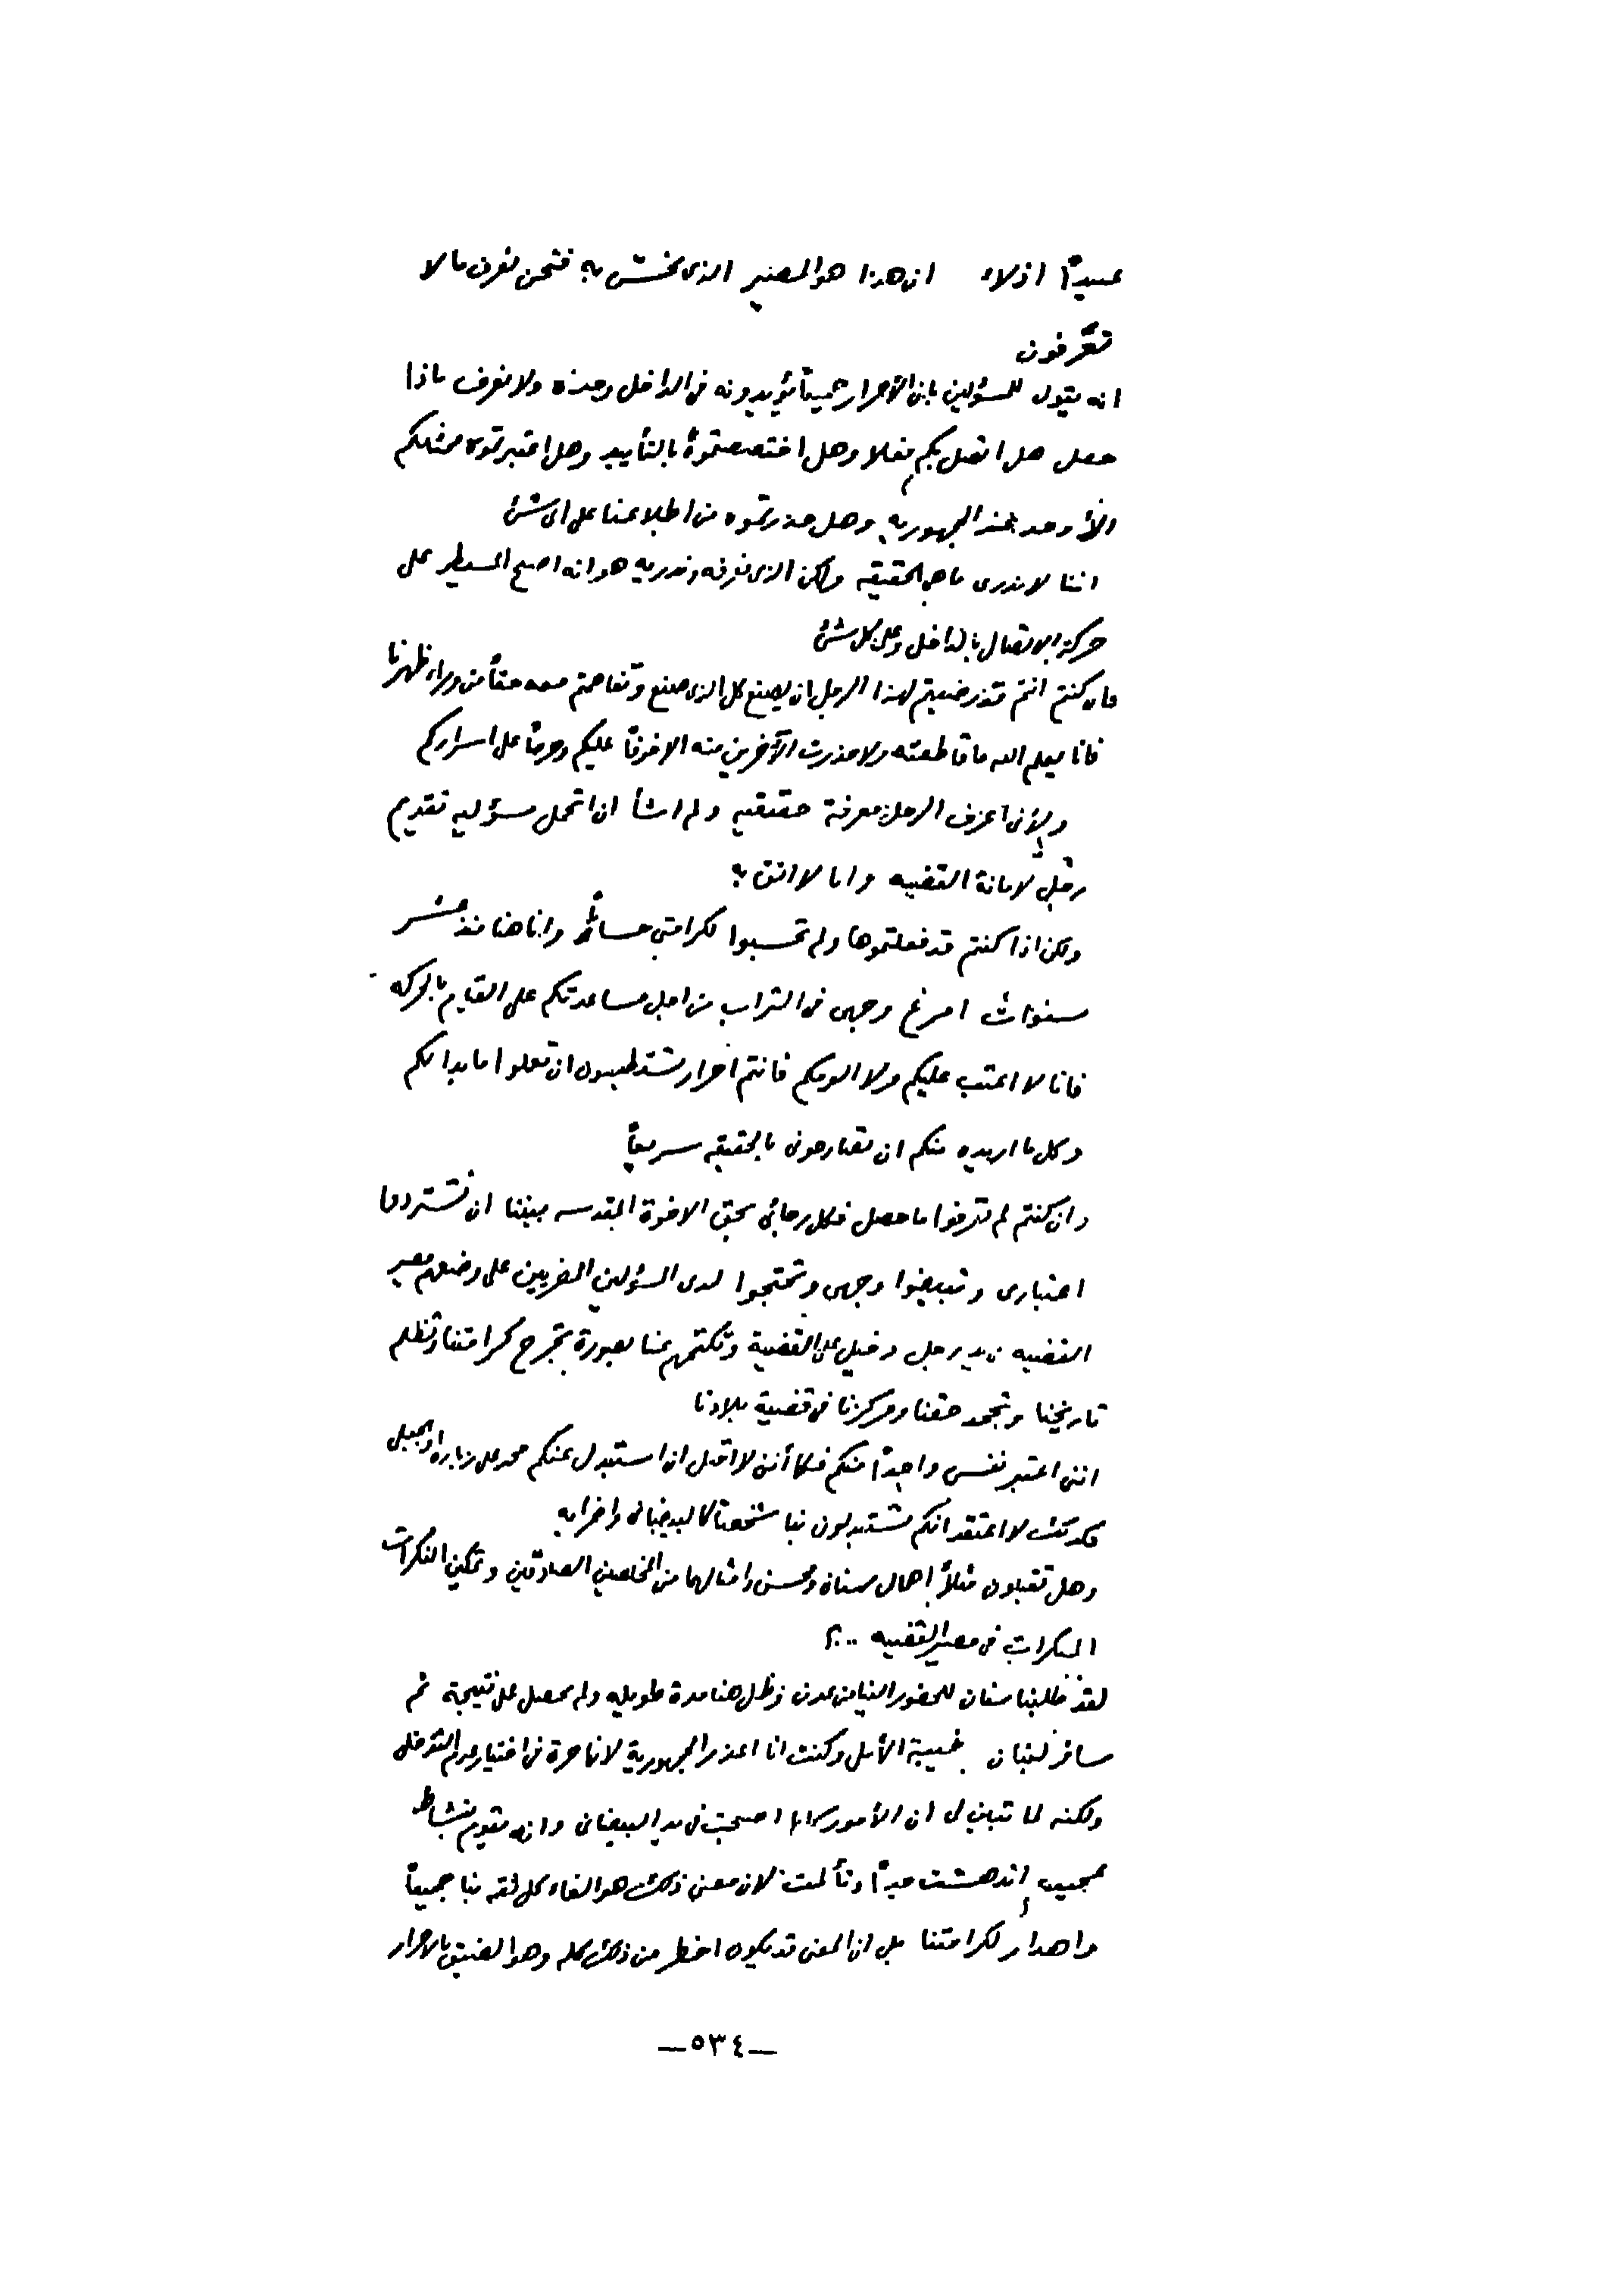 عبيداً اذلاء ان هذا هو المصير الذى نخشى به فنحن نعرف مالا
تعرفون
انه يقول للمسؤلين بان الأحرار جميعاً يؤيدونه فى الداخل وحده ولا نعرف ماذا
حصل هل اتصل بكم فعلا وهل اختصصتموه بالتأييد وهل اعتبرتموه ممثلكم
الأوحد عند الجمهوريه وهل حذرتموه من اطلاعنا على اى شئ
اننا لا ندرى ماهى الحقيقه ولكن الذى نعرفه وندريه هو انه اصبح المسيطر على
حركة الاتصال بالداخل وعلى كل شئ
فان كنتم انتم قد رضيتم لهذا الرجل ان يصنع كل الذى صنع وتفاهمتم معه حقاً من وراء ظهرنا
فانا يعلم الله ما قاطعته ولا حذرت الآخرين منه الا خوفاً عليكم وحرصاً على اسراركم
ولأنى اعرف الرجل معرفة حقيقيه ولم اشأ ان اتحمل مسؤليه تقديم
رجل لامانة القضيه وانا لا اثق به
ولكن اذا كنتم قد فعلتموها ولم تحسبوا لكرامتى حساباً وانا هنا منذ عشر
سنوات امرغ وجهى فى التراب من اجل مساعدتكم على القيام بالحركه
فانا لا اعتب عليكم ولا الومكم فانتم احرار تستطيعون ان تعملوا ما بدا لكم
وكل ما اريده منكم ان تصارحونى بالحقيقه سريعاً
وان كنتم لم تعرفوا ما حصل فكل رجائى بحق الاخوة المقدسه بيننا ان تستردوا
اعتبارى وتبيضوا وجهى وتحتجوا لدى المسؤلين المصريين على وضعهم مصير
القضيه فى يد رجل دخيل على القضية وتكتمهم عنا بصورة تجرح كرامتنا وتظلم
تاريخنا وتجحد حقنا ومركزنا فى قضية بلادنا
اننى اعتبر نفسى واحداً منكم فكما أننى لا اقبل ان استبدل عنكم محمد على زباره او الجبلى
فكذلك لا اعتقد انكم تستبدلون بنا شخصاً كالبيضانى واضرابه
وهل تقبلون مثلاً اهمال سنان ومحسن وامثالهما من المخلصين الصادقين وتمكين النكرات
المنكرات فى مصير القضيه ..؟
لقد طلبنا سنان للحضور الينا من عدن وظل هنا مدة طويله ولم يحصل على نتيجة ثم
سافر لبنان بخيبة الأمل وكنت انا اعذر الجمهورية لانها حرة فى اختيار عدم التدخل
ولكنه لما تبين لى ان الأمور كلها اصبحت فى يد البيضانى وانه يقوم بنشاط
عجيب اندهشت جداً وتألمت لان معنى ذلك هو الغاء كل ثقه بنا جميعاً
واهدار لكرامتنا بل ان المعنى قد يكون اخطر من ذلك كله وهو الضيق بالاحرار
—٥٣٤—